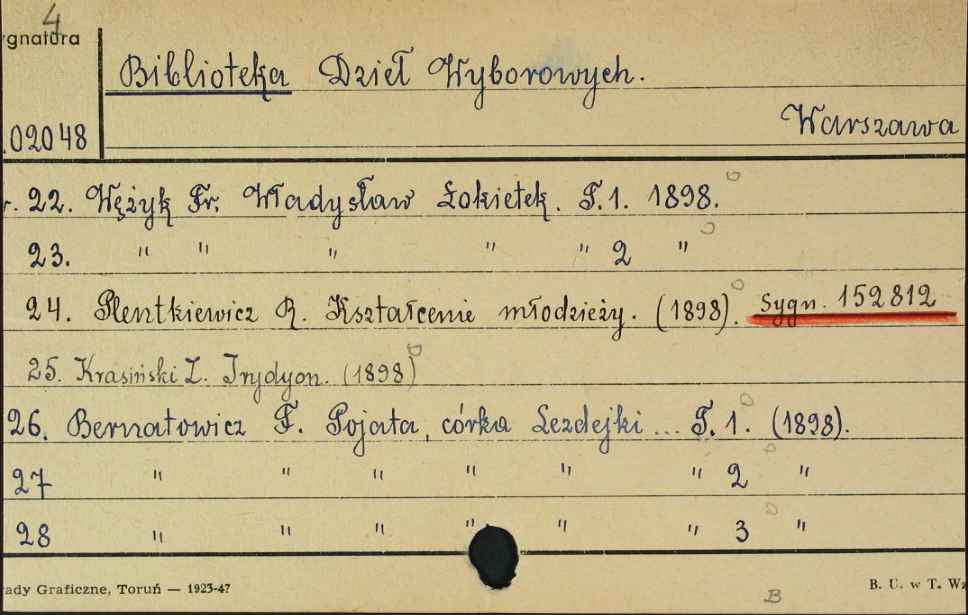 4
ygnatura
Biblioteka Dzieł Wyborowych.
.02048
Warszawa
r. 22. Wężyk Fr. Władysław Łokietek. T.1. 1898.
23. " " " " " 2 "
24. Plentkiewicz R. Kształcenie młodzieży. (1898). Sygn. 152812
25. Krasiński Z. Irydyon. (1898)
26. Bernatowicz F. Pojata, córka Lezdejki ... T. 1. (1898).
27 " " " " " " 2 "
28 " " " " " " 3 "
ady Graficzne, Toruń — 1923-47
B. U. w T. Wz
B